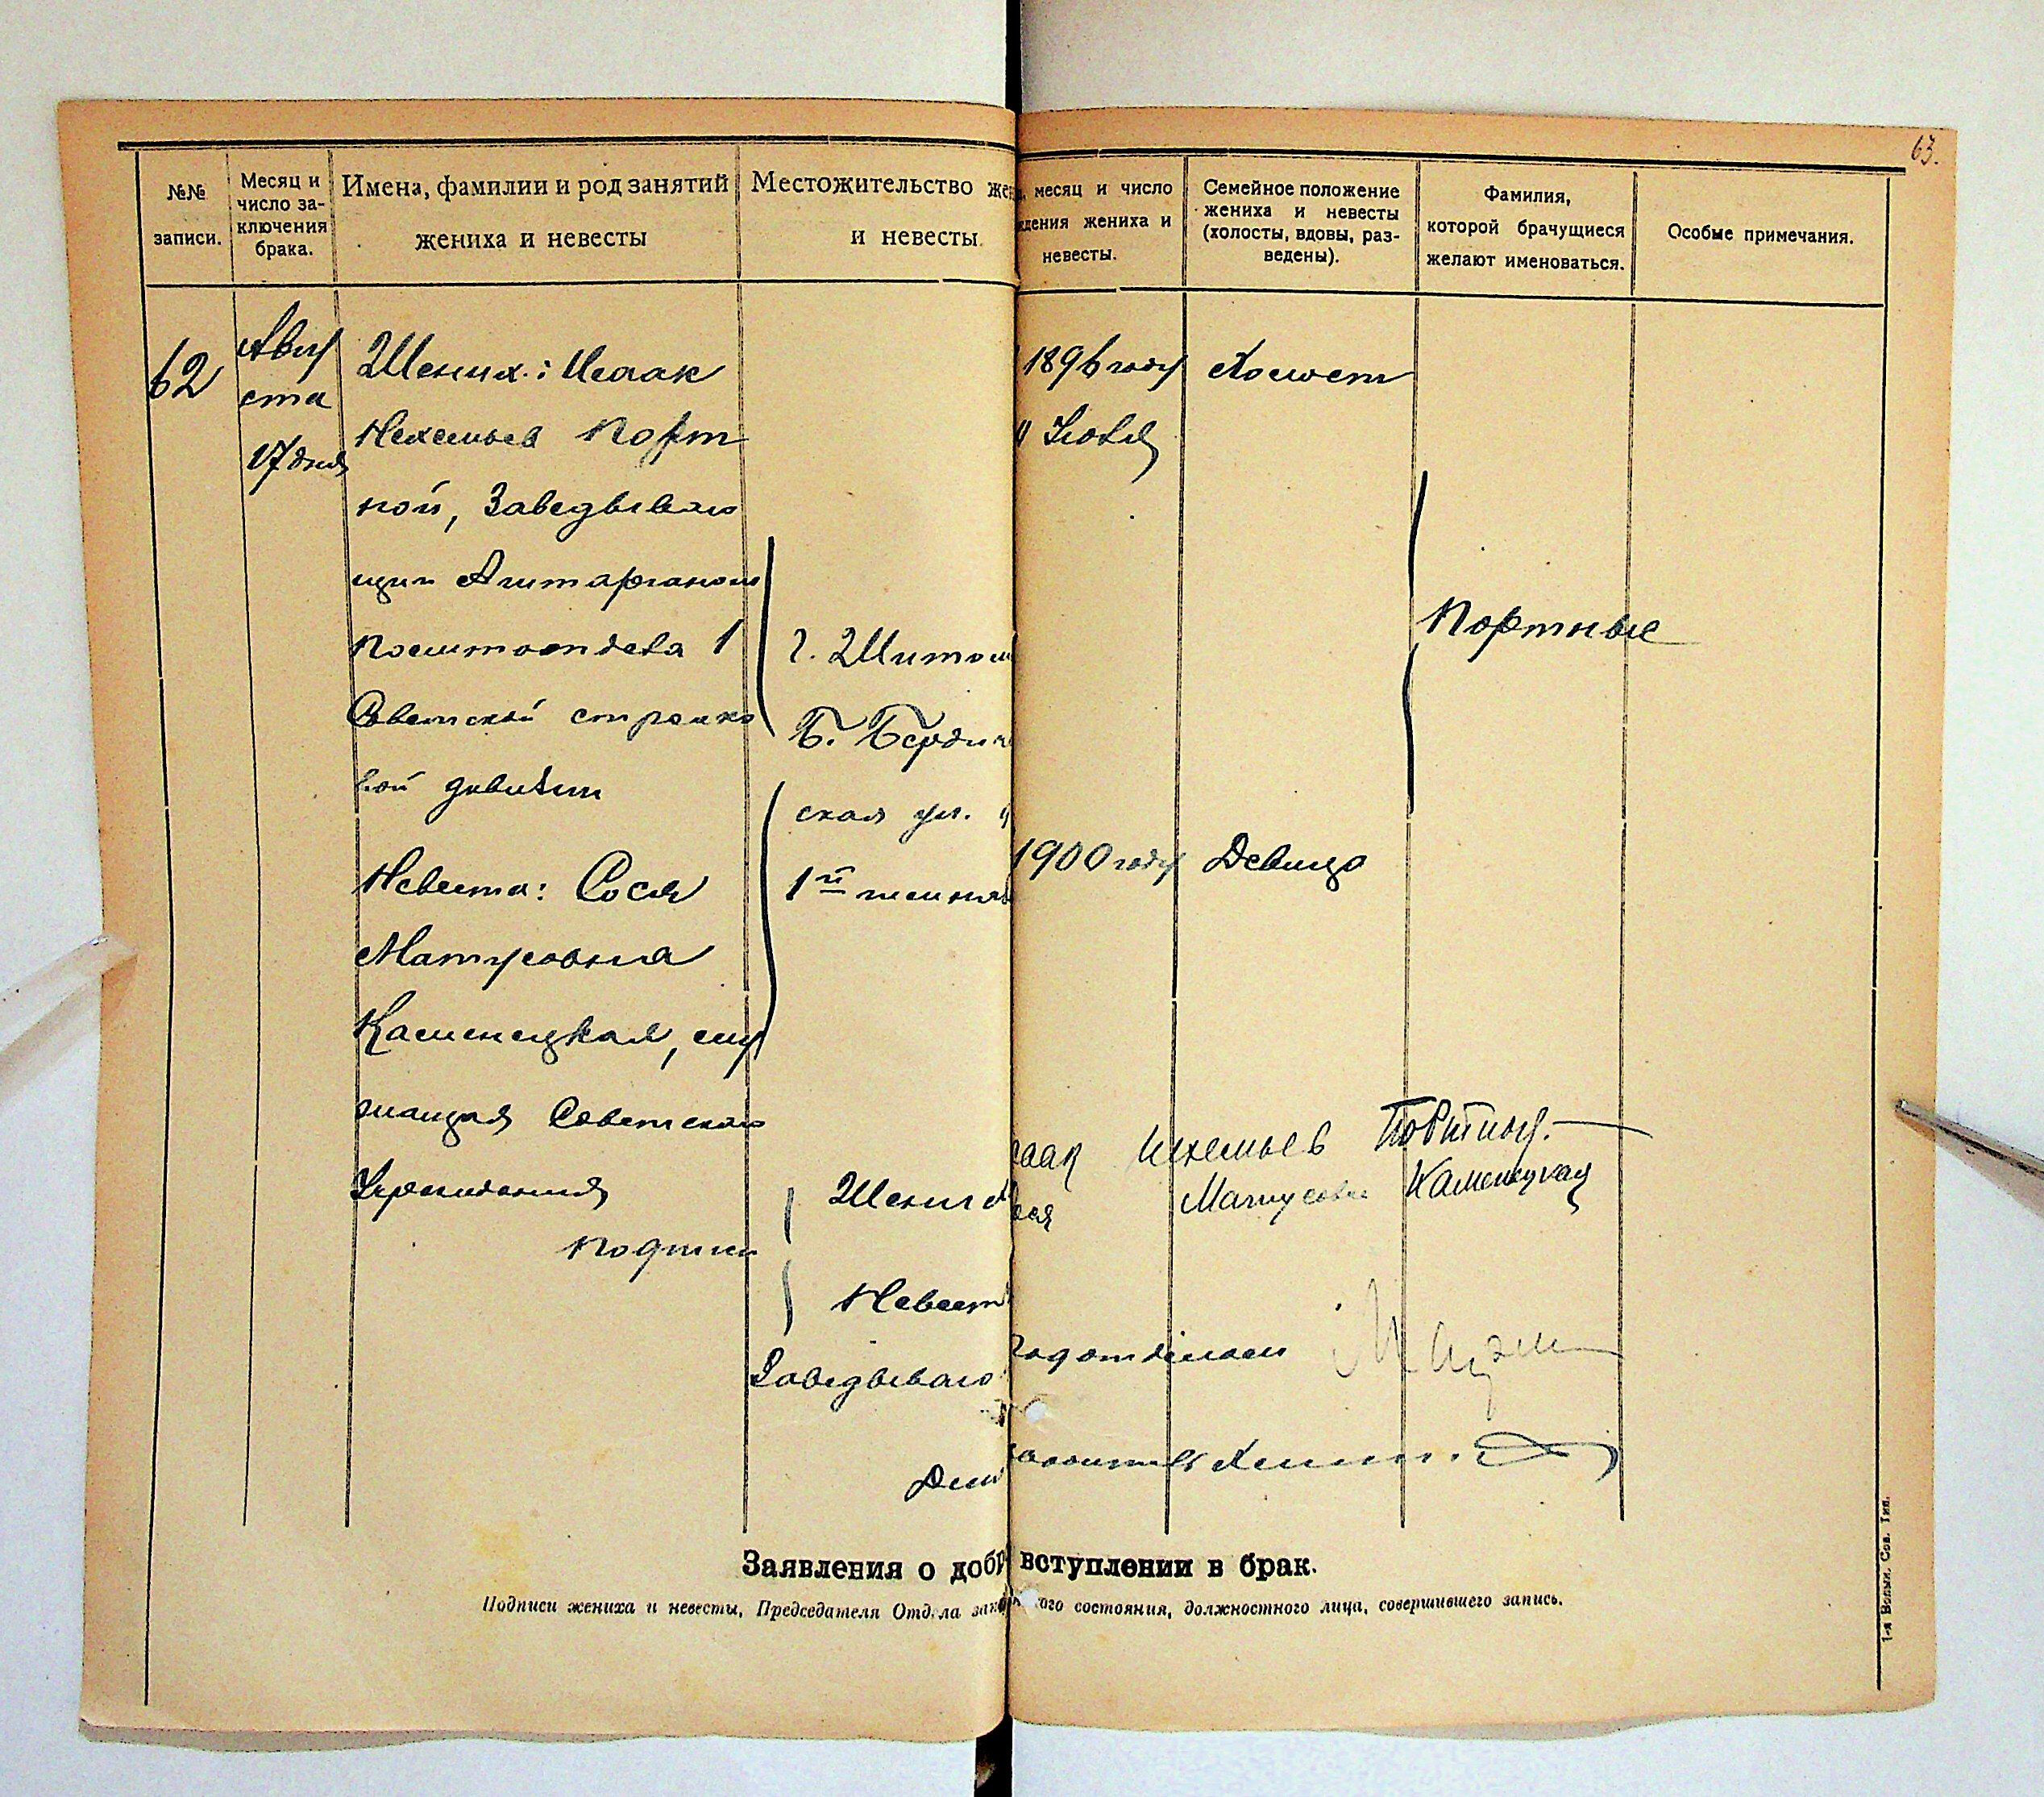 63.
№№ записи.
Месяц и число заключения брака.
Имена, фамилии и род занятий
жениха и невесты
Местожительство же
и невесты.
месяц и число
дения жениха и
невесты.
Семейное положение
жениха и невесты
(холосты, вдовы, раз-
ведены).
Фамилия,
которой брачущиеся
желают именоваться.
Особые примечания.
62
Авгу
ста
17 дня
Жених: Исаак
Нехемьев Порт
ной, Заведываю
щий Агитарганом
Политотдела 1
Советской стрелко
вой дивизии
Невеста: Сося
Матусовна
Каменецкая, слу
жащая Советского
Учреждения
г. Житом
Б. Бердич
ская ул.
1й
1896 году
Июля
1900 году
Холост
Девица
Портные
Подписи
Жених
Невест
Заведываю
саак Нехемьев Портной.
ося Матусовна Каменецкая
подотделом
Заявления о добр вступлении в брак.
Подписи жениха и невесты, Председателя Отдела зап ого состояния, должностного лица, совершившего запись.
1-я Волын. Сов. Тип.